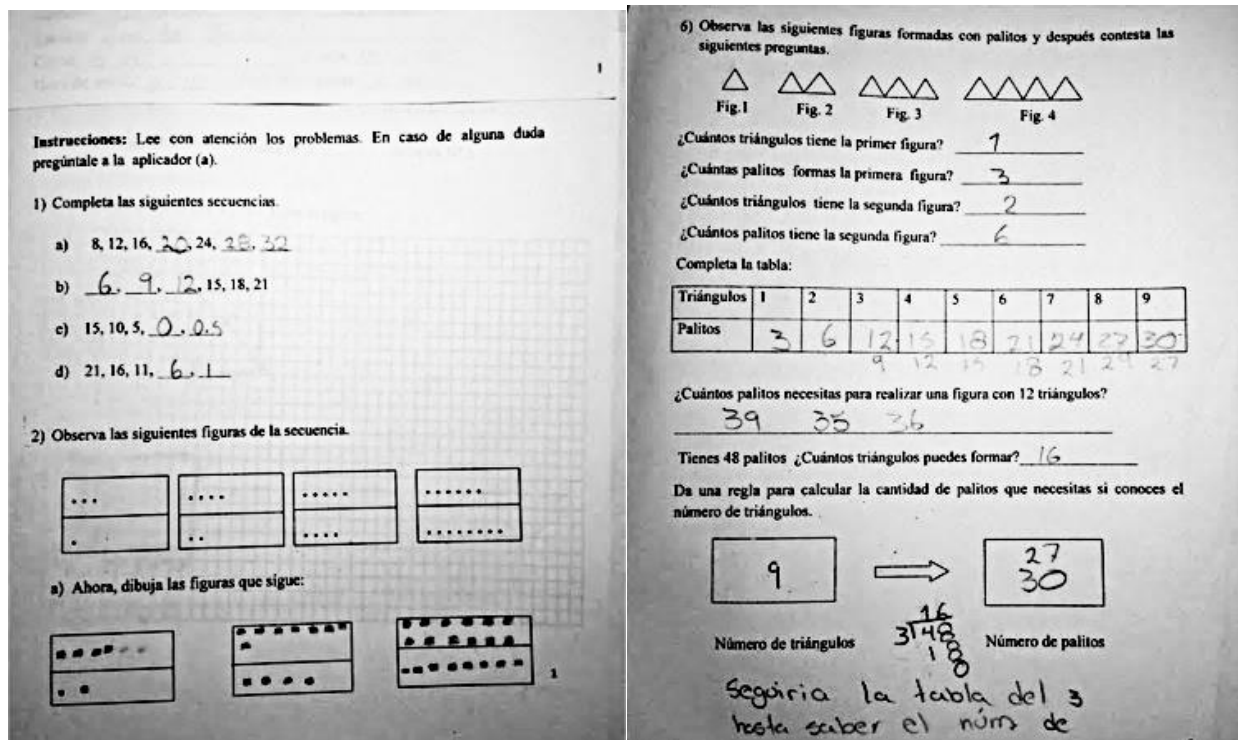 1
Instrucciones: Lee con atención los problemas. En caso de alguna duda
pregúntale a la aplicador (a).
1) Completa las siguientes secuencias.
a) 8, 12, 16, 20, 24, 28, 32
b) 6, 9, 12, 15, 18, 21
c) 15, 10, 5, 0, 0.5
d) 21, 16, 11, 6, 1
2) Observa las siguientes figuras de la secuencia.
a) Ahora, dibuja las figuras que sigue:
1
6) Observa las siguientes figuras formadas con palitos y después contesta las
siguientes preguntas.
Fig.1 Fig. 2 Fig. 3 Fig. 4
¿Cuántos triángulos tiene la primer figura? 1
¿Cuántas palitos formas la primera figura? 3
¿Cuántos triángulos tiene la segunda figura? 2
¿Cuántos palitos tiene la segunda figura? 6
Completa la tabla:
Triángulos 1 2 3 4 5 6 7 8 9
Palitos 3 6 12 15 18 21 24 27 30
9 12 15 18 21 24 27
¿Cuántos palitos necesitas para realizar una figura con 12 triángulos?
39 35 36
Tienes 48 palitos ¿Cuántos triángulos puedes formar? 16
Da una regla para calcular la cantidad de palitos que necesitas si conoces el
número de triángulos.
9
27
30
Número de triángulos
16
3 48
1
Número de palitos
Seguiria la tabla del 3
hasta saber el núm de